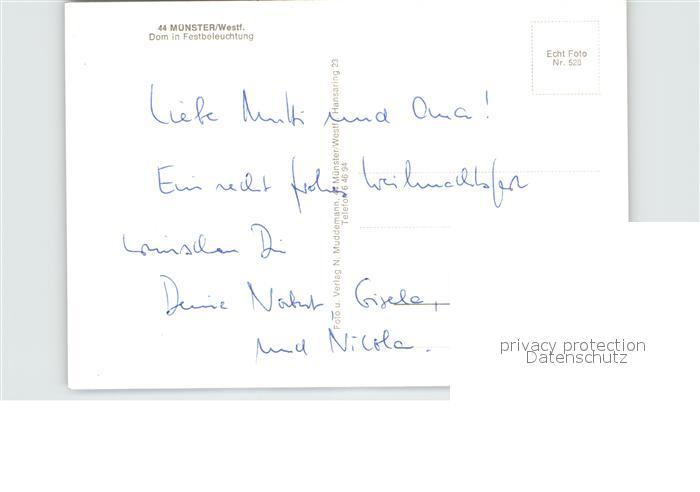 44 MÜNSTER/Westf.
Dom in Festbeleuchtung
Echt Foto
Nr. 528
Liebe Mutti und Oma!
Ein recht frohes Weihnachtsfest
wünschen Dir
Deine Norbert, Gisela,
und Nicola.
Foto u. Verlag N. Muddemann, 44 Münster/Westf., Hansaring 23
Telefon 6 46 94
privacy protection
Datenschutz